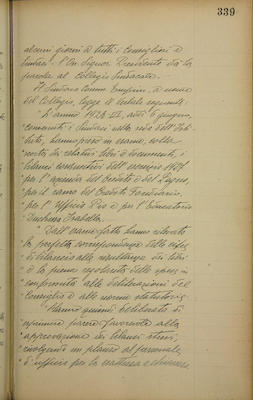 339
alcuni giorni a tutti i consiglieri e
sindaci. L'On. Signor Presidente dà la
parola al Collegio Sindacale.
Il Sindaco Comm. a nome
del Collegio, legge il verbale seguente:
"L'anno 1928-VI, addì 6 giugno,
convenuti i Sindaci nella sede dell'Isti-
tuto, hanno preso in esame, sulla
scorta dei relativi libri e documenti, i
bilanci consuntivi dell'esercizio 1927
per l'azienda del Credito e del Pegno,
per il ramo del Credito Fondiario,
per l'Ufficio Pio e per l'Educatorio
Duchessa Isabella.
"Dall'esame fatto hanno rilevato
la perfetta corrispondenza delle cifre
di bilancio alle risultanze dei libri
e la piena regolarità delle spese in
confronto alle deliberazioni del
Consiglio e alle norme statutarie.
"Hanno quindi deliberato di
esprimere parere favorevole alla
approvazione dei bilanci stessi,
rivolgendo un plauso al personale
d'ufficio per la esattezza e chiarezza